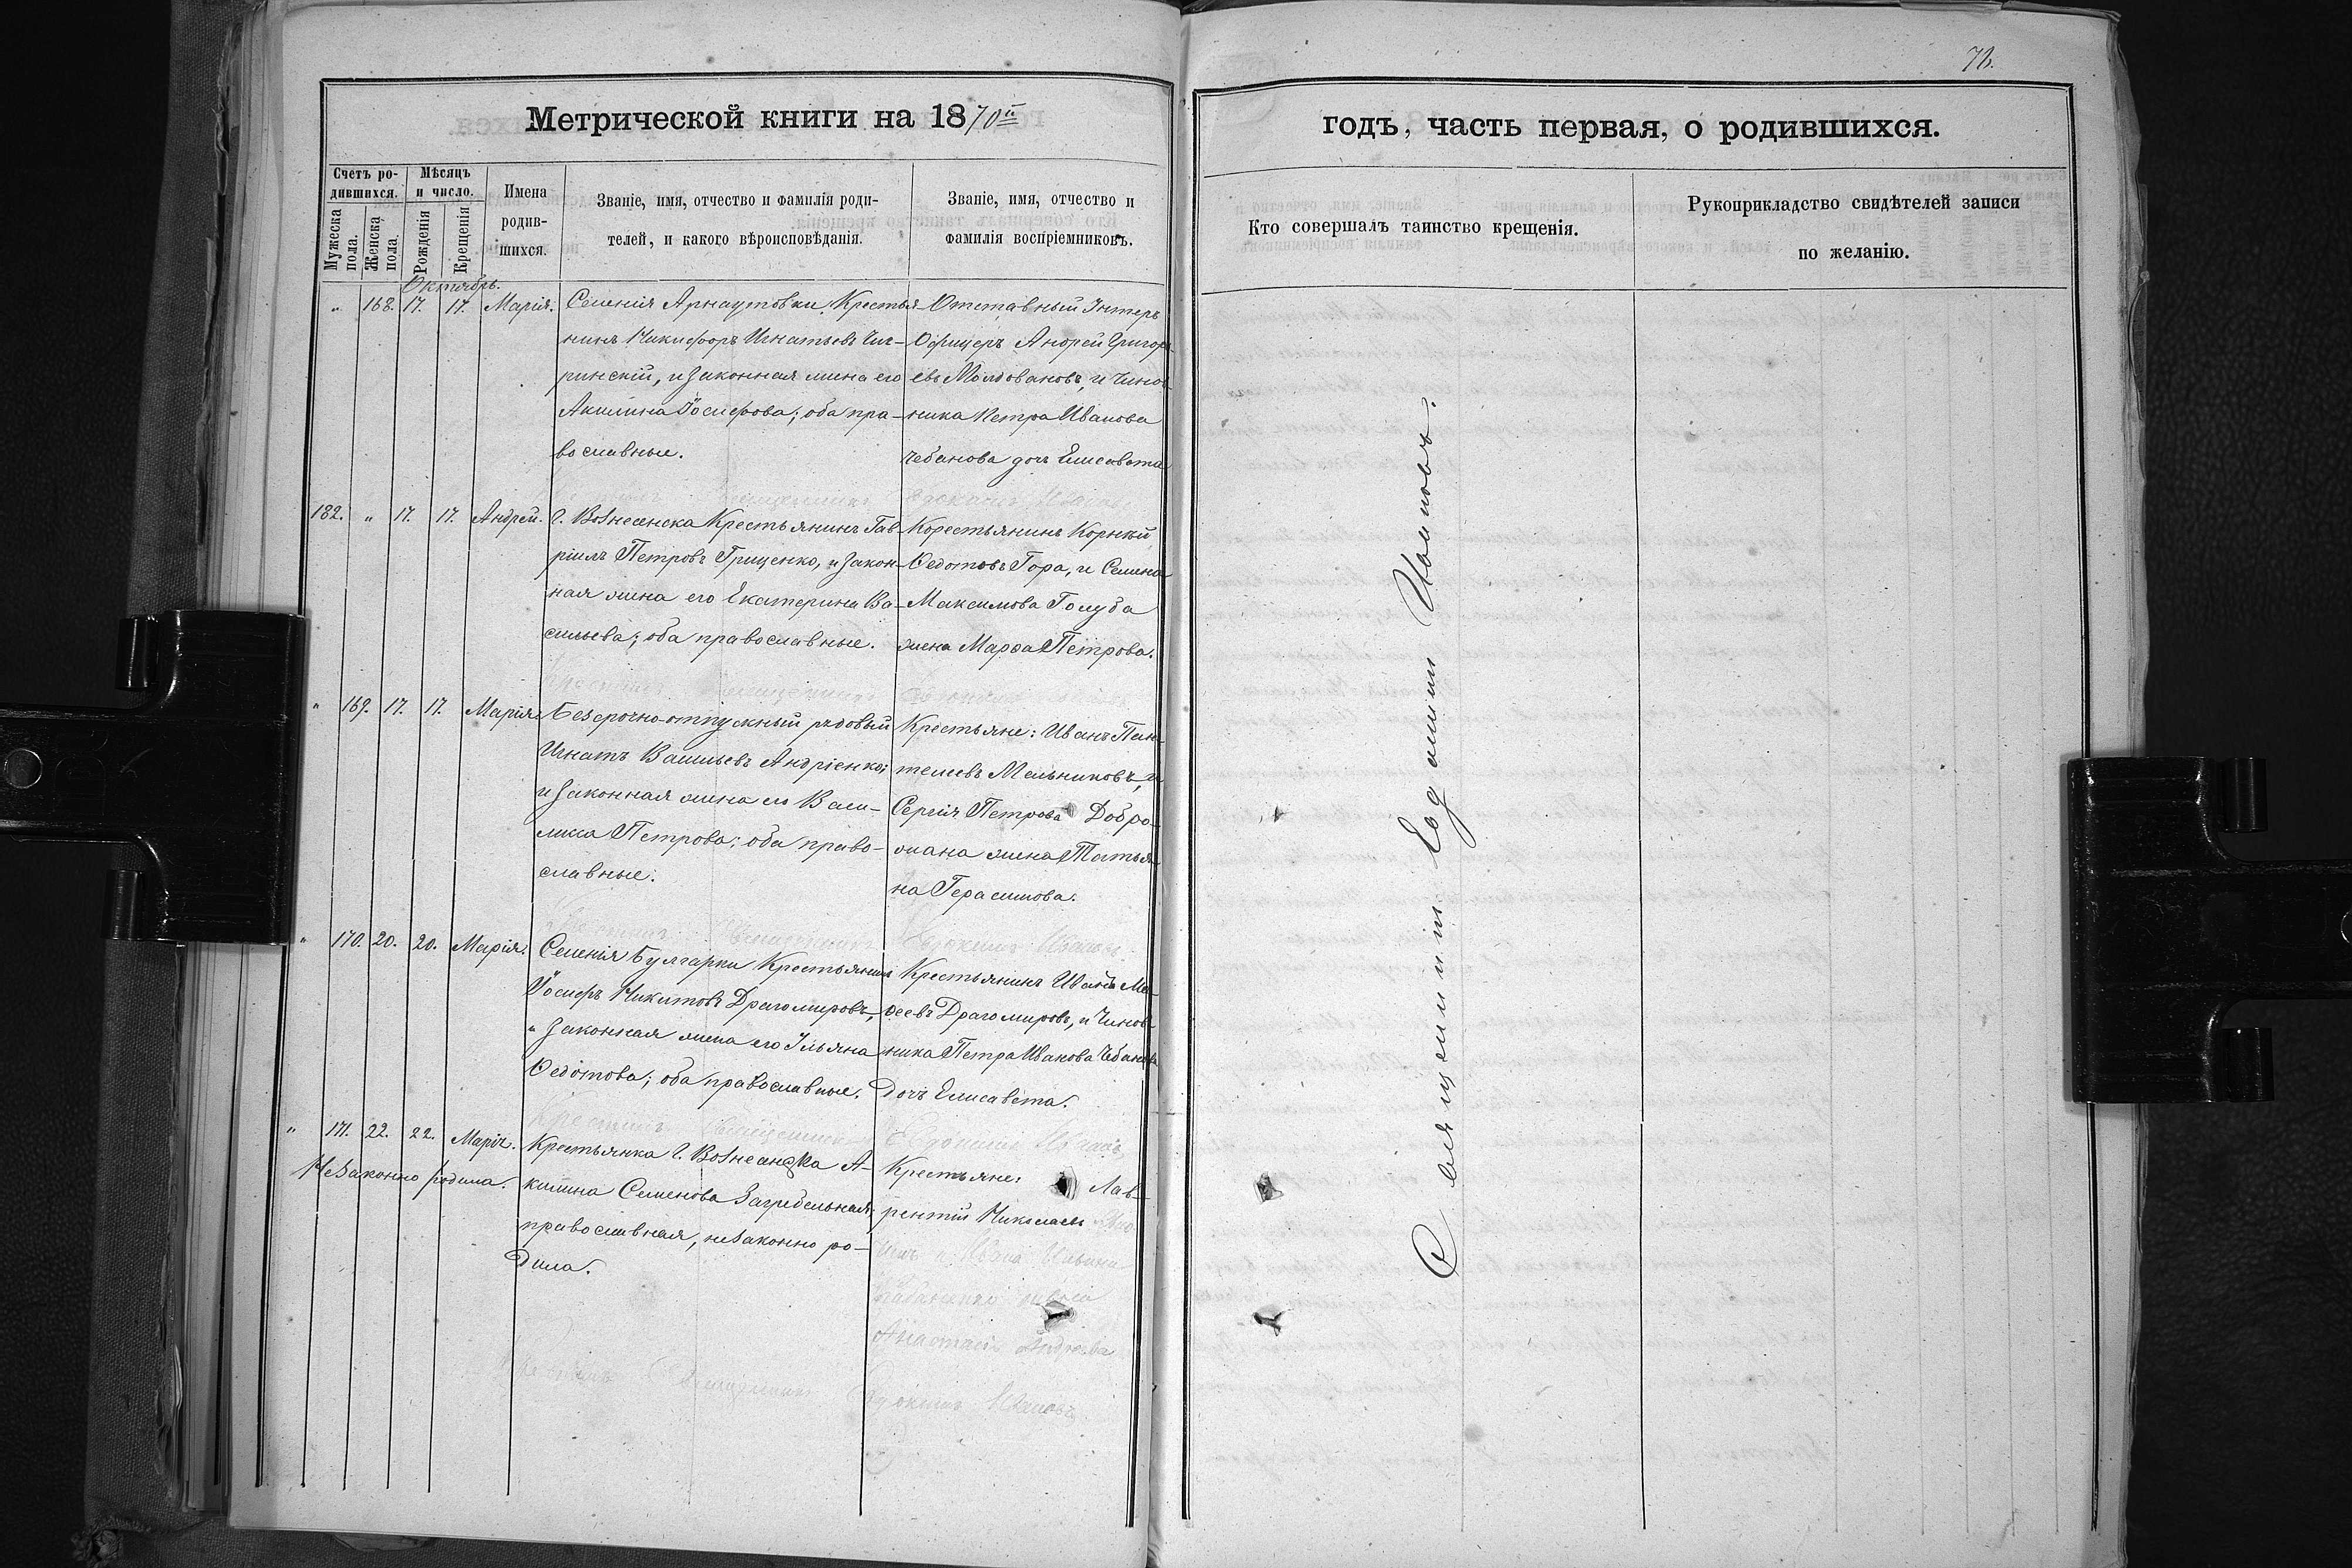 78.
Метрической книги на 1870й
годъ, часть первая, о родившихся.
Счетъ ро-
дившихся.
Мужеска пола.
Женска пола.
Мѣсяцъ
и число.
Рожденія
Крещенія
Имена
родив-
шихся.
Званіе, имя, отчество и фамилія роди-
телей, и какого вѣроисповѣданія.
Званіе, имя, отчество и
фамилія воспріемниковъ.
Кто совершалъ таинство крещенія.
Рукоприкладство свидѣтелей записи
по желанію.
Октябрь.
„ 168. 17. 17. Марія.
Селенія Арнаутовки, Крестья-
нинъ Никифоръ Игнатьевъ Чиг-
ринскій, и законная жена его
Акилина Іосифова; оба пра-
вославные.
Отставный Унтеръ
Офицеръ Андрей Григорь-
евъ Молдовановъ, и Чинов-
ника Петра Иванова
Чебанова дочь Елисавета
182. „ 17. 17. Андрей.
г. Вознесенска Крестьянинъ Гав-
ріилъ Петровъ Гриценко, и закон-
ная жена его Екатерина Ва-
сильева; оба православные.
Крестьянинъ Корній
Федотовъ Гора, и Семена
Максимова Голуба
жена Марфа Петрова.
„ 169. 17. 17. Марія.
Безсрочно-отпускный рядовый
Игнатъ Васильевъ Андріенко,
и законная жена его Васи-
лиса Петрова; оба право-
славные.
Крестьяне: Иванъ Пан-
телеевъ Мельниковъ, и
Сергія Петрова Добро-
жана жена Татья-
на Герасимова.
„ 170. 20. 20. Марія.
Селенія Булгарки Крестьянинъ
Іосифъ Никитовъ Драгомировъ,
и законная жена его Ульяна
Федотова; оба православные.
Крестьянинъ Иванъ Мо-
феевъ Драгомировъ, и Чинов-
ника Петра Иванова Чебанова
дочь Елисавета.
„ 171. 22. 22. Марія.
Незаконно родила.
Крестьянка г. Вознесенска А-
килина Семенова Загребельная
православная, незаконно ро-
дила.
Крестьяне: Лав-
рентій Николаевъ
Анастасія Андреева
Священникъ Евдокимъ Ивановъ.